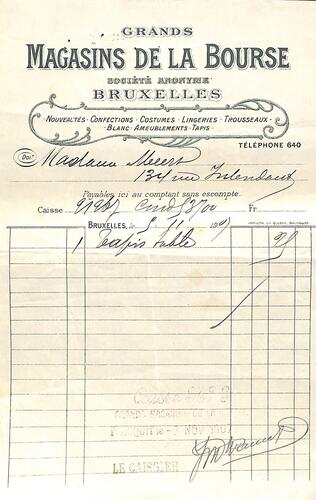 GRANDS
MAGASINS DE LA BOURSE
SOCIÉTÉ ANONYME
BRUXELLES
NOUVEAUTÉS · CONFECTIONS · COSTUMES · LINGERIES · TROUSSEAUX ·
BLANC · AMEUBLEMENTS · TAPIS ·
TÉLÉPHONE 640
Doit Madame Meert
134 rue
Payables ici au comptant sans escompte.
Caisse Fr.
BRUXELLES, 5 11 190
1 Tapis table
GRANDS MAGASINS DE LA
NOV 1907
LE CAISSIER